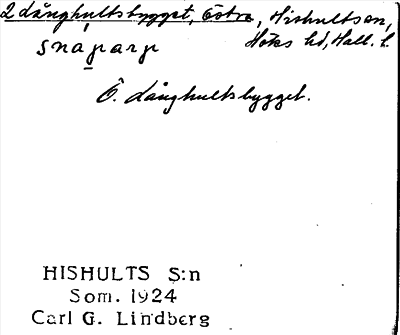 2 Långhultsbygget, Östra, Hishults sn,
Höks hd, Hall. l.
snaparp
Ö. Långhultsbygget.
HISHULTS S:n
Som. 1924
Carl G. Lindberg